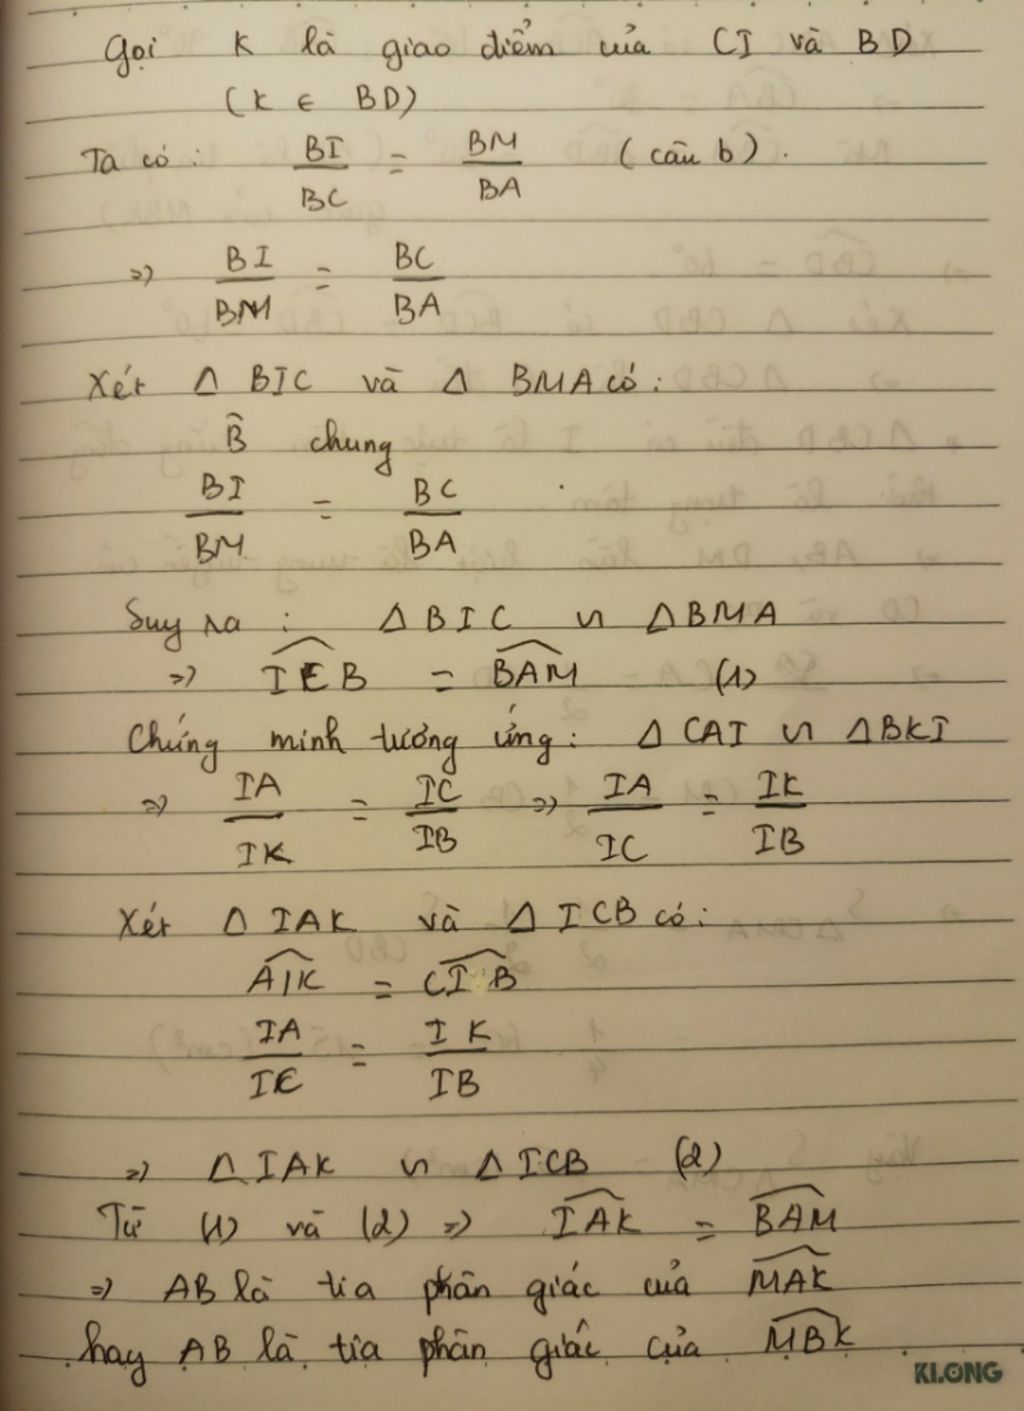 Gọi K là giao điểm của CI và BD
(K ∈ BD)
Ta có: BI/BC = BM/BA (câu b).
=> BI/BM = BC/BA
Xét Δ BIC và Δ BMA có:
B̂ chung
BI/BM = BC/BA
Suy ra: ΔBIC ∽ ΔBMA
=> ICB = BAM (1)
Chứng minh tương ứng: Δ CAI ∽ ΔBKI
=> IA/IK = IC/IB => IA/IC = IK/IB
Xét Δ IAK và Δ ICB có:
AIK = CIB
IA/IC = IK/IB
=> ΔIAK ∽ ΔICB (2)
Từ (1) và (2) => IAK = BAM
=> AB là tia phân giác của MAK
hay AB là tia phân giác của MBK
KLONG